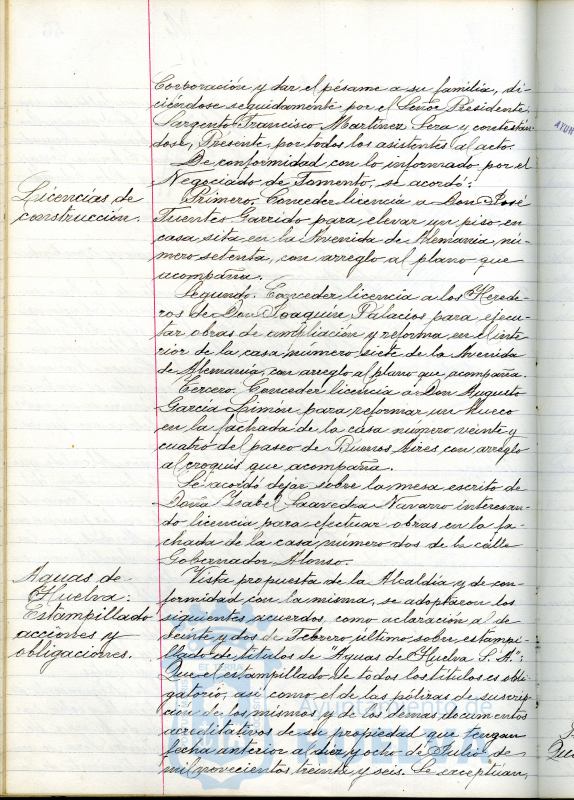 Corporación y dar el pésame a su familia, di-
ciéndose seguidamente por el Señor Presidente.
Sargento Francisco Martínez Sera y contestán-
dose, Presente, por todos los asistentes al acto.
De conformidad con lo informado por el
Negociado de Fomento, se acordó:
Licencias de
construcción.
Primero. Conceder licencia a Don José
Fuentes Garrido para elevar un piso en
casa sita en la Avenida de Alemania nú-
mero setenta, con arreglo al plano que
acompaña.
Segundo. Conceder licencia a los Herede-
ros de Don Joaquín Palacios para ejecu-
tar obras de ampliación y reforma en el inte-
rior de la casa número siete de la Avenida
de Alemania, con arreglo al plano que acompaña.
Tercero. Conceder licencia a Don Augusto
García Simón para reformar un hueco
en la fachada de la casa número veinte y
cuatro del paseo de Buenos Aires con arreglo
al croquis que acompaña.
Se acordó dejar sobre la mesa escrito de
Doña Isabel Saavedra Navarro interesan-
do licencia para efectuar obras en la fa-
chada de la casa número dos de la calle
Gobernador Alonso.
Aguas de
Huelva:
Estampillado
acciones y
obligaciones.
Vista propuesta de la Alcaldía y de con-
formidad con la misma, se adoptaron los
siguientes acuerdos como aclaración al de
veinte y dos de Febrero último sobre estampi-
llado de títulos de "Aguas de Huelva S. A.":
Que el estampillado de todos los títulos es obli-
gatorio, así como el de las pólizas de suscrip-
ción de los mismos y de los demás documentos
acreditativos de su propiedad que tengan
fecha anterior a diez y ocho de Julio de
mil novecientos treinta y seis. Se exceptúan,
Ayuntamiento de